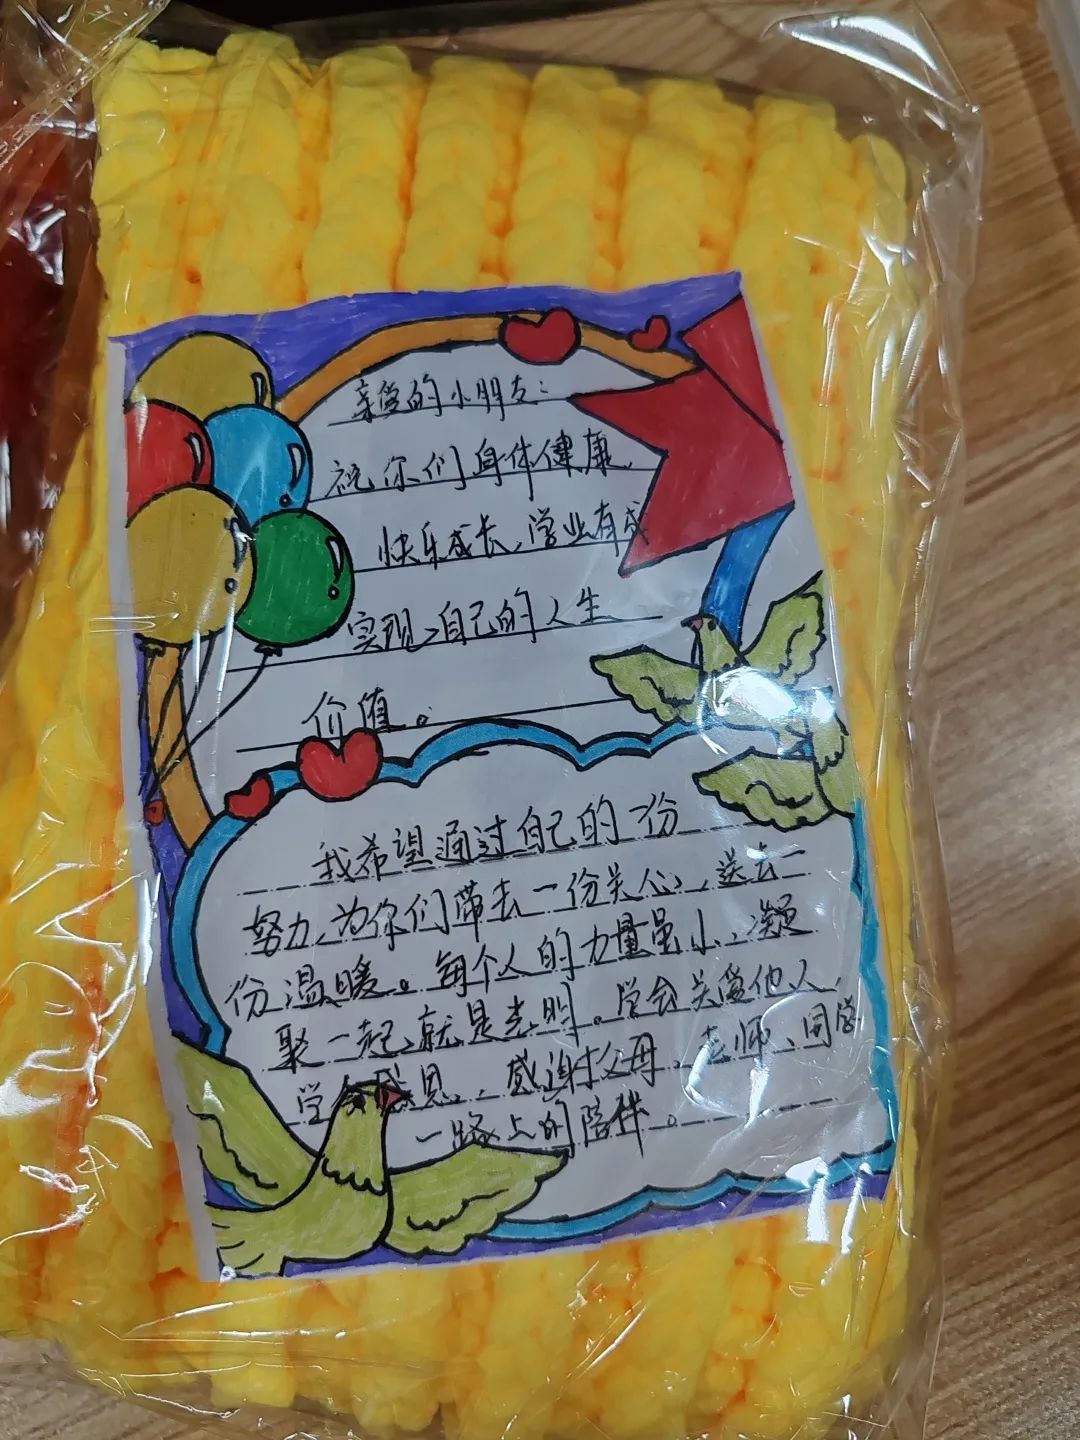 亲爱的小朋友：
祝你们身体健康、
快乐成长、学业有成
实现自己的人生
价值。
我希望通过自己的一份
努力、为你们带去一份关心、送去一
份温暖。每个人的力量虽小、凝
聚一起、就是光明。学会关爱他人、
学会感恩、感谢父母、老师、同学
一路上的陪伴。